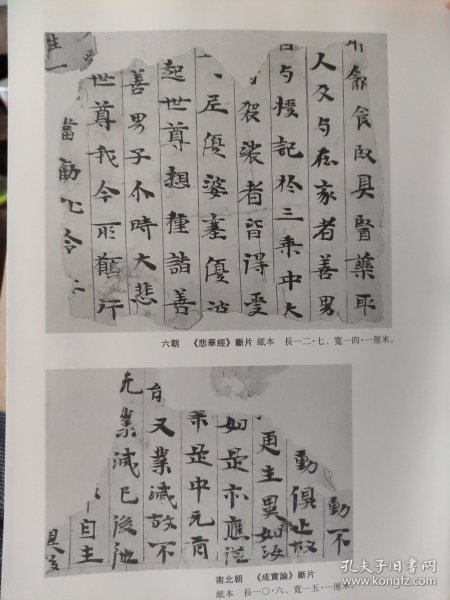 飲食臥具醫藥
人及与在家者善男
与授記於三乘中大
袈裟者皆得受
優婆塞優婆
起世尊想種諸善
善男子尒時大悲
世尊我今所願行
當勸化令
六朝 《悲華經》斷片 紙本 長一二·七、寬一四·一厘米。
動不
動俱止故
更主異如汝
如是亦應從
是中无有
有又業滅故不
无業滅已後他
自主
南北朝 《成實論》斷片
紙本 長一〇·六、寬一五·一厘米。
孔夫子旧书网